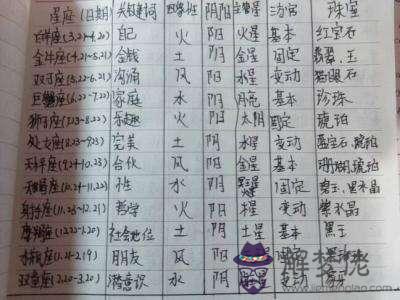 星座(日期) 关键词 四象性 阴阳 主宰星 三方宫 珠宝
白羊座(3,21-4.20) 自己 火 阳 火星 基本 红宝石
金牛座(4,21-5.21) 金钱 土 阴 金星 固定 翡翠,玉
双子座(5.22-6.21) 沟通 风 阳 水星 变动 猫眼石
巨蟹座(6.22-7.22) 家庭 水 阴 月亮 基本 珍珠
狮子座(7.23-8.23) 乐趣 火 阳 太阳 固定 琥珀
处女座(8.23-9.23) 完美 土 阴 水星 变动 蓝宝石,琥珀
天秤座(9.24-10.23) 合伙 风 阳 金星 基本 珊瑚,琥珀
天蝎座(10.24-11.22) 性 水 阴 固定 碧玉,黑水晶
射手座(11.23-12.21) 哲学 火 阳 木星 变动 紫水晶
摩羯座(12.22-1.20) 社会地位 土 阴 土星 基本 黑玉
水瓶座(1.21-2.19) 朋友 风 阳
双鱼座(2.20-3.20) 潜意识 水 阴
解梦佬
www.jiemenglao.com